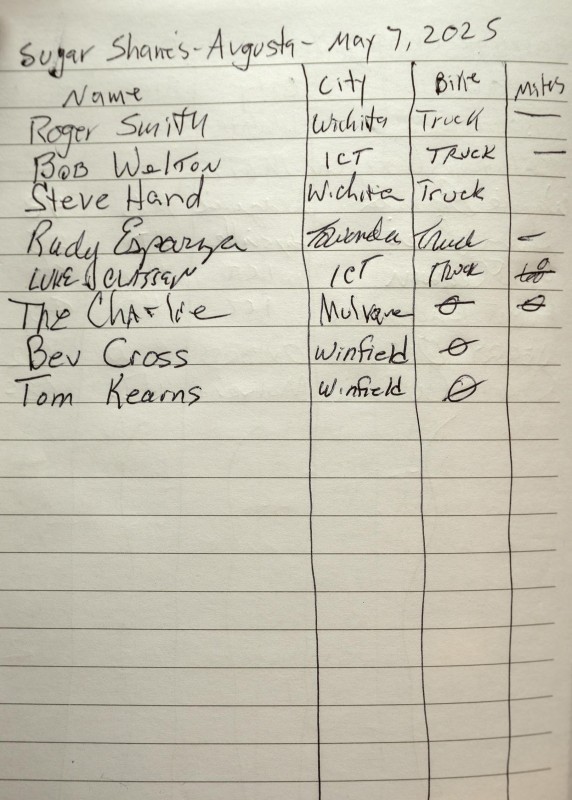 Sugar Shane's - Augusta - May 7, 2025
Name City Bike Miles
Roger Smith Wichita Truck —
BOB Welton ICT TRUCK —
Steve Hand Wichita Truck
Rudy Esparza Towanda Truck -
LUKE CLASSEN ICT TRUCK
The Charlie Mulvane 0 0
Bev Cross Winfield 0
Tom Kearns Winfield 0